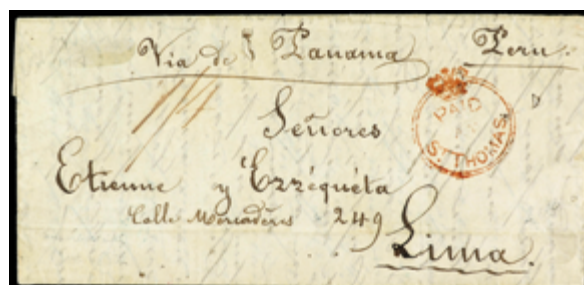 Via de Panama Perú.
1/4
PAID
ST THOMAS
Señores
Etienne y Ezzéquéta
Calle Mercaderes 249
Lima.